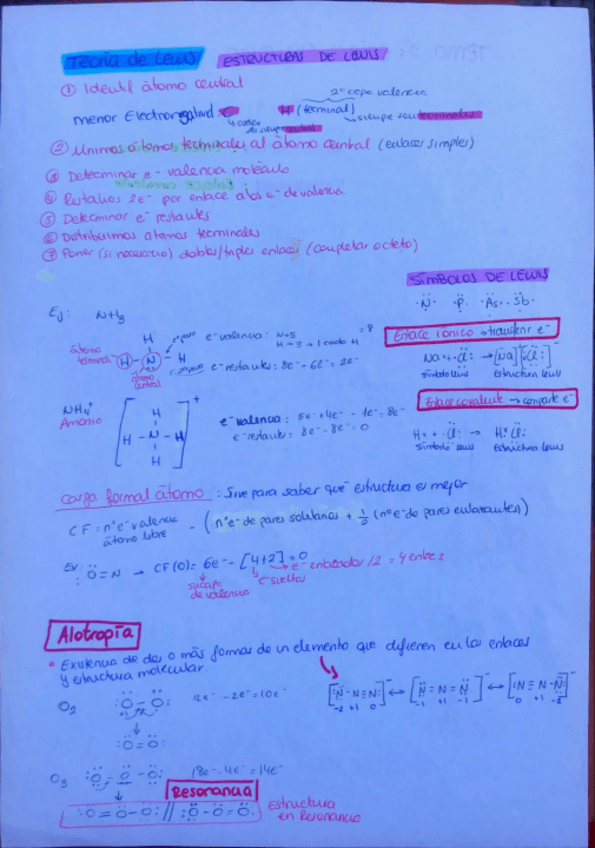 Teoría de Lewis ESTRUCTURAS DE LEWIS
① Identif átomo central
2e⁻ capa valencia
menor Electronegativd C H (terminal)
siempre son terminales
② Unimos átomos terminales al átomo central (enlaces simples)
③ Determinar e⁻ valencia molécula
④ Restamos 2e⁻ por enlace a los e⁻ de valencia
⑤ Determinar e⁻ restantes
⑥ Distribuimos átomos terminales
⑦ Poner (si necesario) dobles/triples enlaces (completar octeto)
SÍMBOLOS DE LEWIS
N P As Sb
Ej: NH₃
Enlace iónico → transferir e⁻
H
átomo terminal H - N - H
átomo central
e⁻ valencia: N→5
H→3→1 cada H = 8
e⁻ restantes: 8e⁻ - 6e⁻ = 2e⁻
Na· + ·Cl: → [Na] [:Cl:]⁻
Símbolo Lewis Estructura Lewis
Enlace covalente → comparte e⁻
H· + ·Cl: → H:Cl:
Símbolo Lewis Estructura Lewis
NH₄⁺
Amonio
H
H - N - H
H
+
e⁻ valencia: 5e⁻ + 4e⁻ - 1e⁻ = 8e⁻
e⁻ restantes: 8e⁻ - 8e⁻ = 0
Carga formal átomo: Sirve para saber que estructura es mejor
CF = nº e⁻ valencia átomo libre - (nº e⁻ de pares solitarios + 1/2 (nº e⁻ de pares enlazantes))
Ex: :O=N → CF(O) = 6e⁻ - [4+2] = 0
e⁻ enlazados /2 = 4 entre 2
e⁻ sueltos
su capa de valencia
Alotropía
• Existencia de dos o más formas de un elemento que difieren en los enlaces
y estructura molecular.
[:N-N≡N:]⁻ ↔ [N=N=N]⁻ ↔ [:N≡N-N:]⁻
-2 +1 0 -1 +1 -1 0 +1 -2
O₂ :O-O: 12e⁻ - 2e⁻ = 10e⁻
↓
:O=O:
O₃ :O-O-O: 18e⁻ - 4e⁻ = 14e⁻
↓
Resonancia
:O=O-O: // :O-O=O:
Estructura
en Resonancia